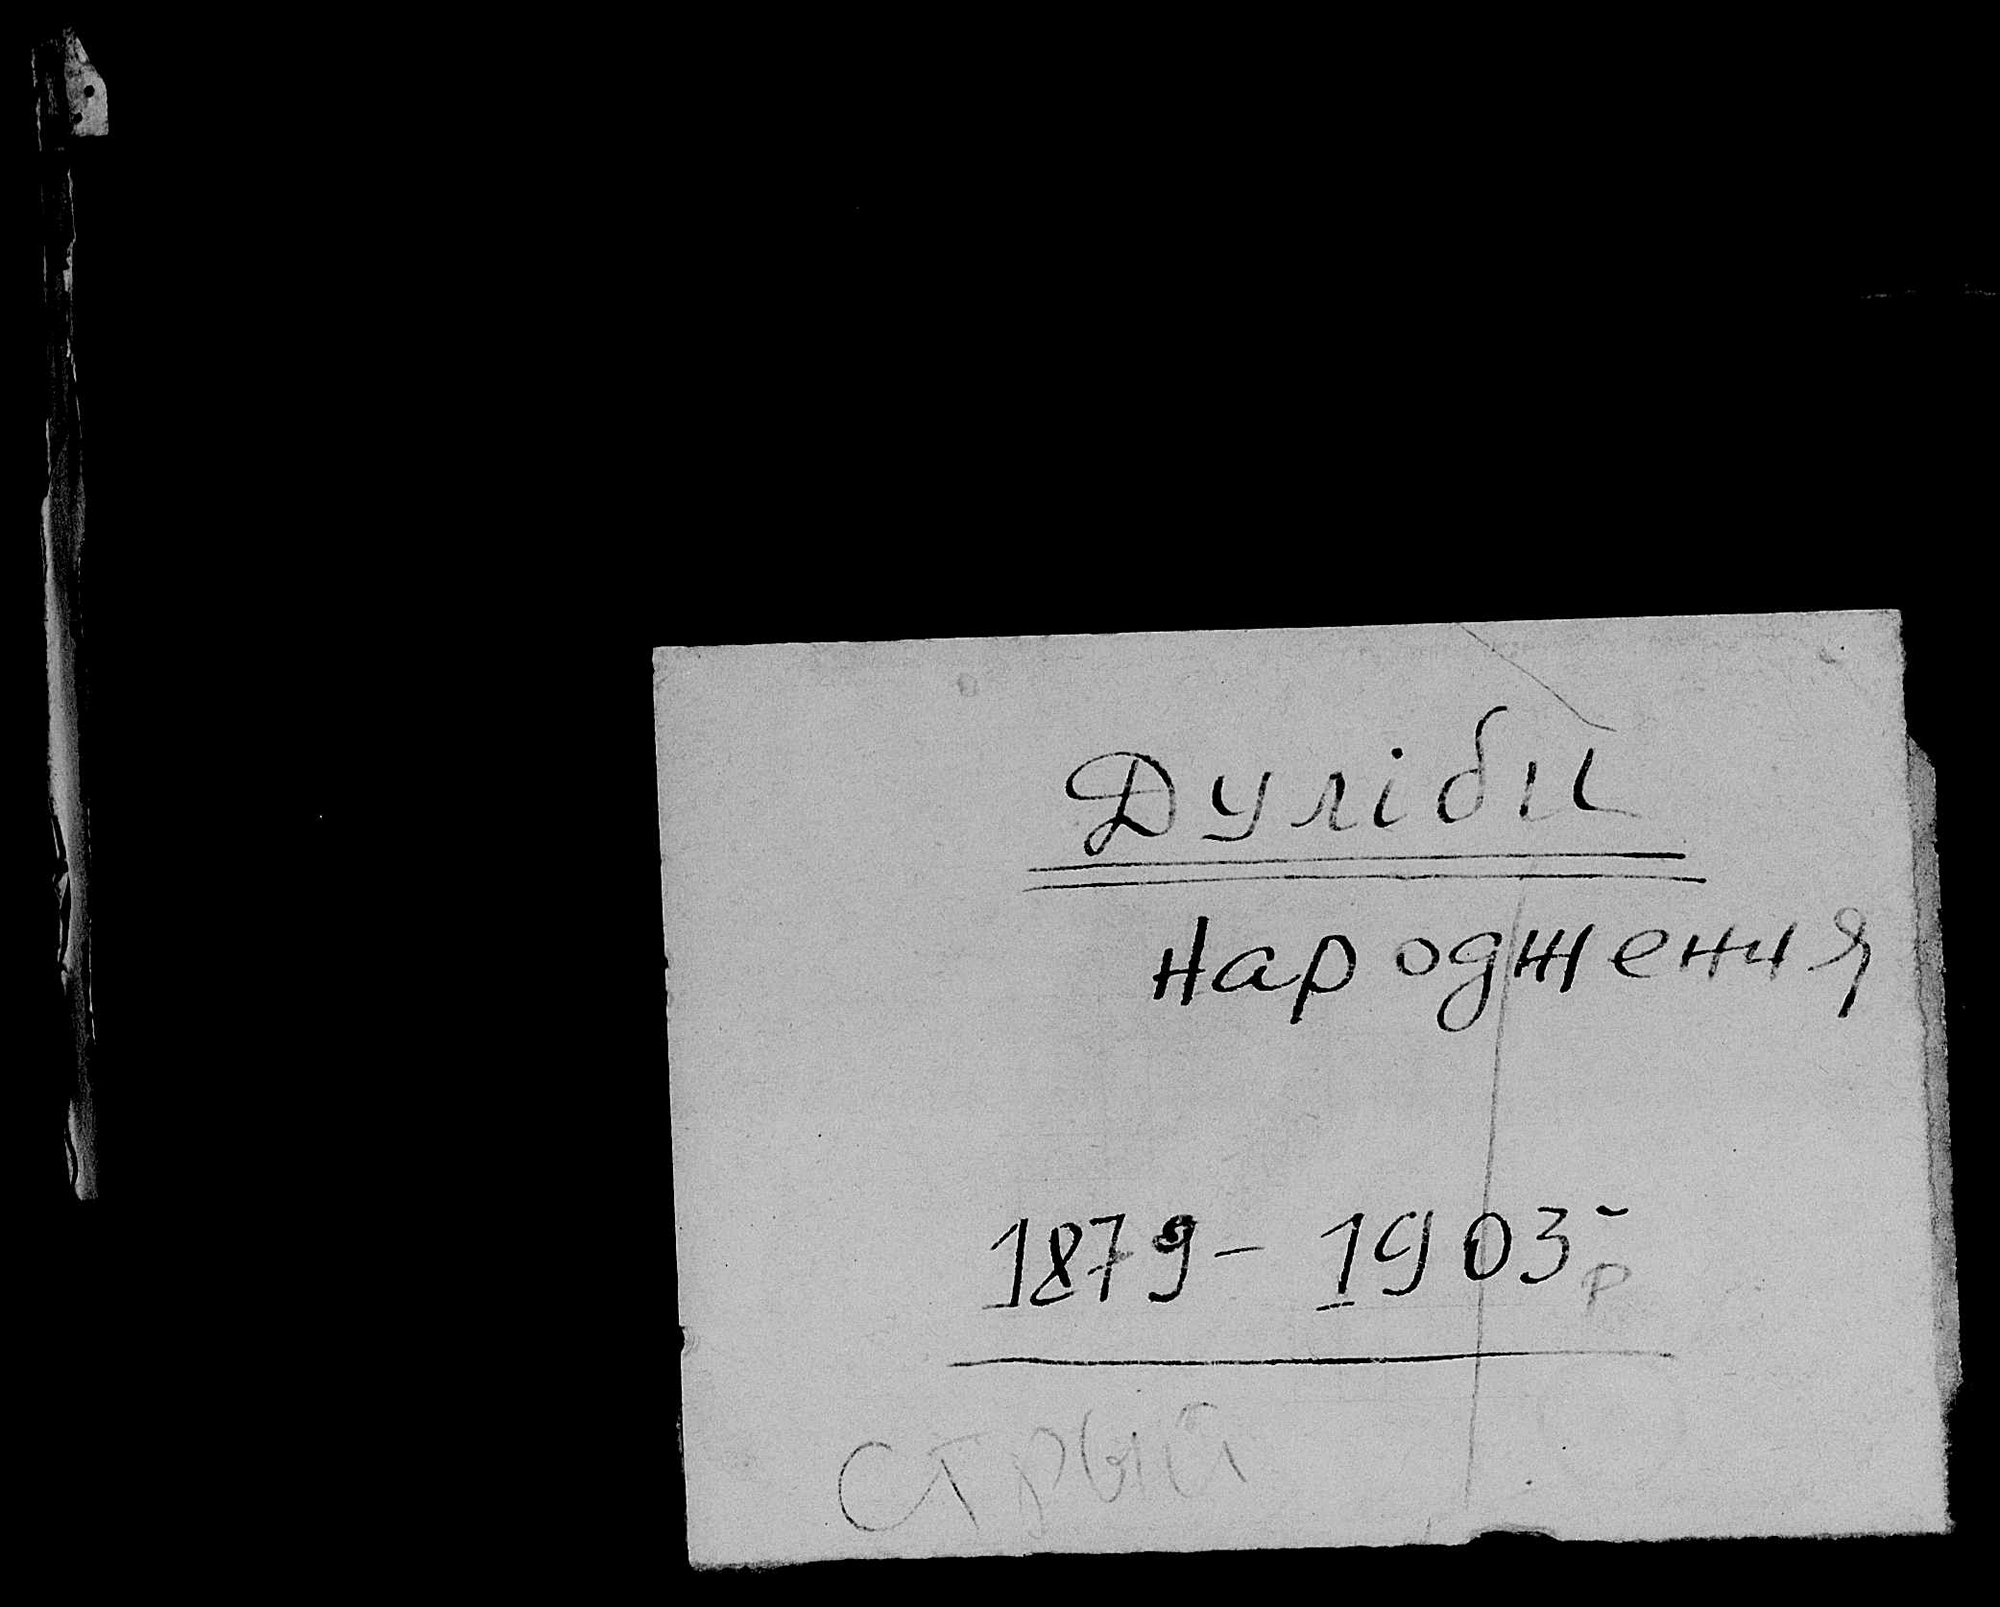 Дуліби
народження
1879 - 1903 р
Стрый